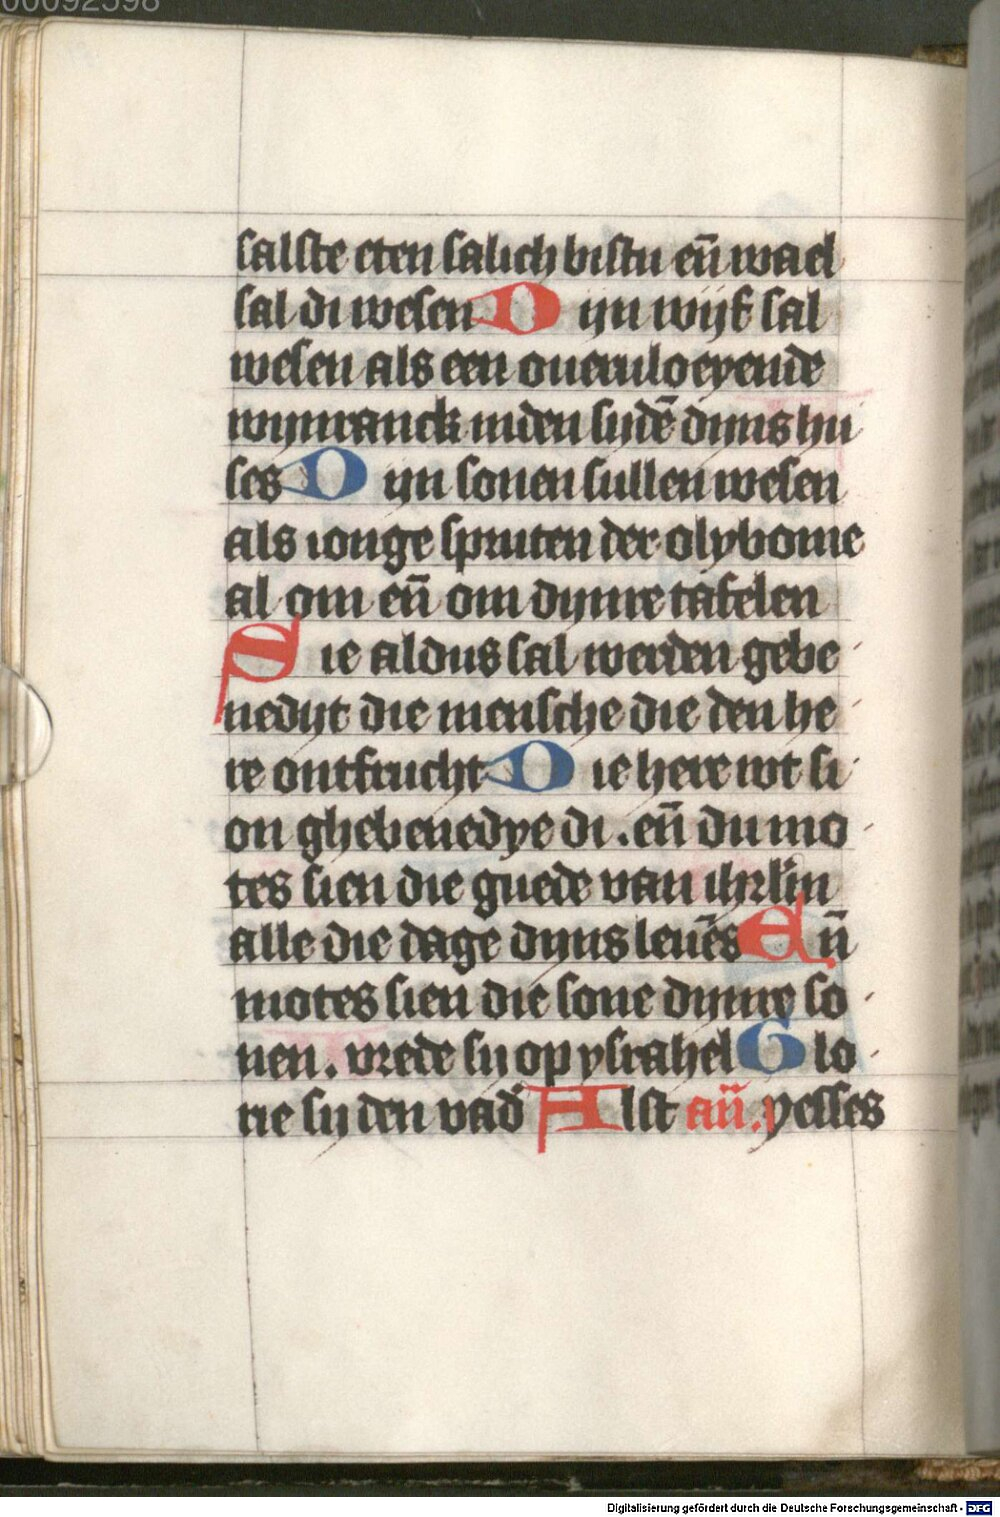 00092598
salste eten salich bistu eñ wael
sal di wesen Dijn wijf sal
wesen als een oueruloeyende
wijnranck inden sydē dijns hu
ses Dijn sonen sullen wesen
als ionge spruten der olybome
al om eñ om dijnre tafelen
Sie aldus sal werden gebe
nedijt die mensche die den he
re ontfrucht Die here wt si
on ghebenedye di . eñ du mo
tes sien die guede van ihrl'm
alle die dage dijns leuēs Eñ
motes sien die sone dijnre so
nen . vrede sij op ysrahel Glo
rie sij den vad' Alst añ. yesses
Digitalisierung gefördert durch die Deutsche Forschungsgemeinschaft - DFG